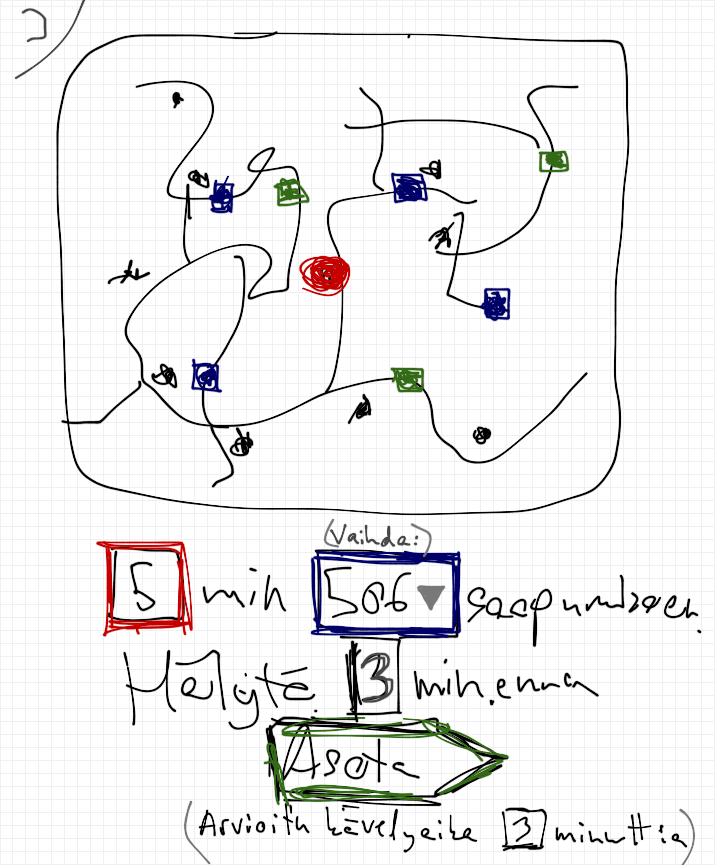 (Vaihda:)
5 min 506 ▼ saapumiseen.
Hälytä 3 min. ennen
Asota
(Arvioitu kävelyaika 3 minuuttia)